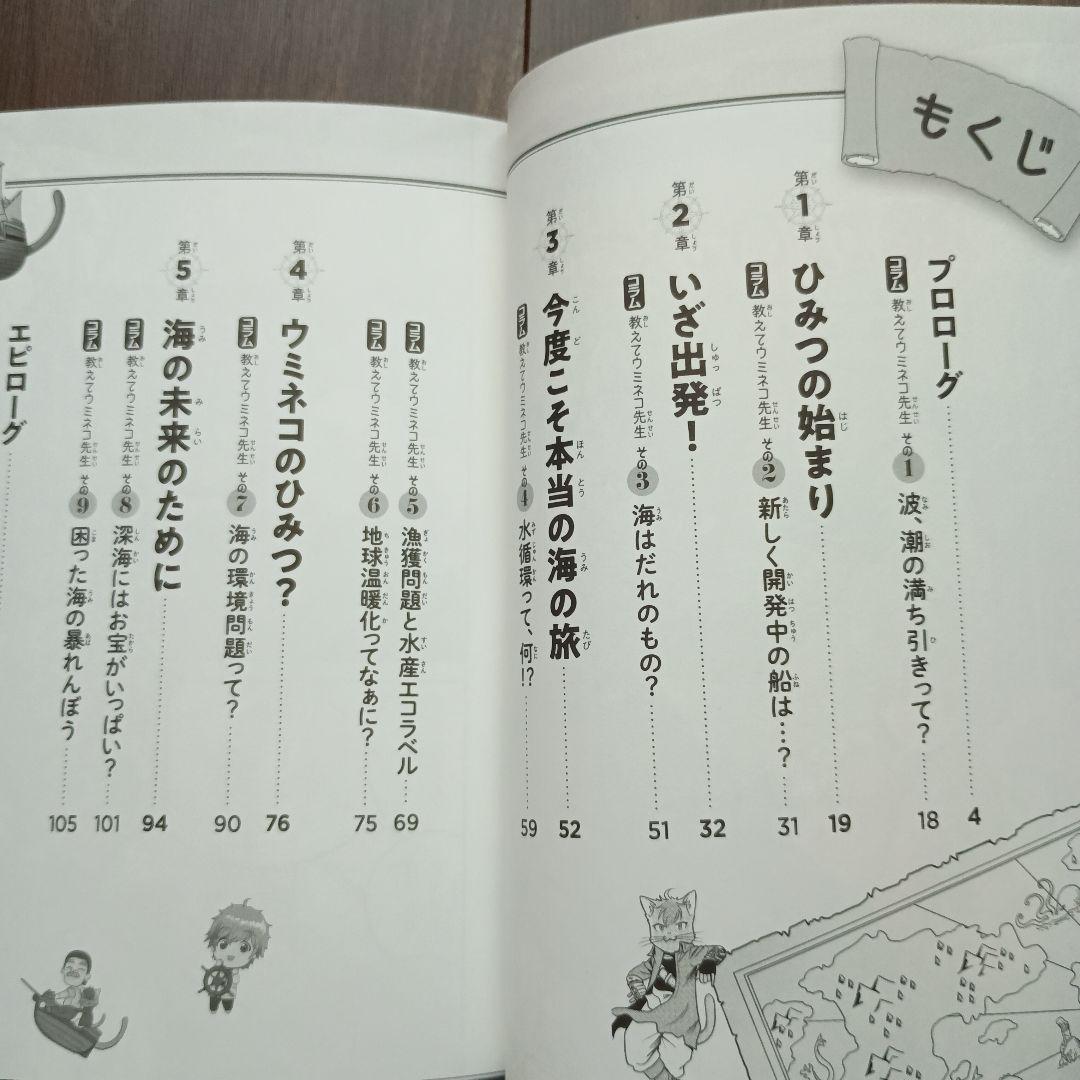 もくじ
プロローグ 4
コラム 教えてウミネコ先生 その1 波、潮の満ち引きって? 18
第1章 ひみつの始まり 19
コラム 教えてウミネコ先生 その2 新しく開発中の船は…? 31
第2章 いざ出発! 32
コラム 教えてウミネコ先生 その3 海はだれのもの? 51
第3章 今度こそ本当の海の旅 52
コラム 教えてウミネコ先生 その4 水循環って、何!? 59
コラム 教えてウミネコ先生 その5 漁獲問題と水産エコラベル 69
コラム 教えてウミネコ先生 その6 地球温暖化ってなぁに? 75
第4章 ウミネコのひみつ? 76
コラム 教えてウミネコ先生 その7 海の環境問題って? 90
第5章 海の未来のために 94
コラム 教えてウミネコ先生 その8 深海にはお宝がいっぱい? 101
コラム 教えてウミネコ先生 その9 困った海の暴れんぼう 105
エピローグ